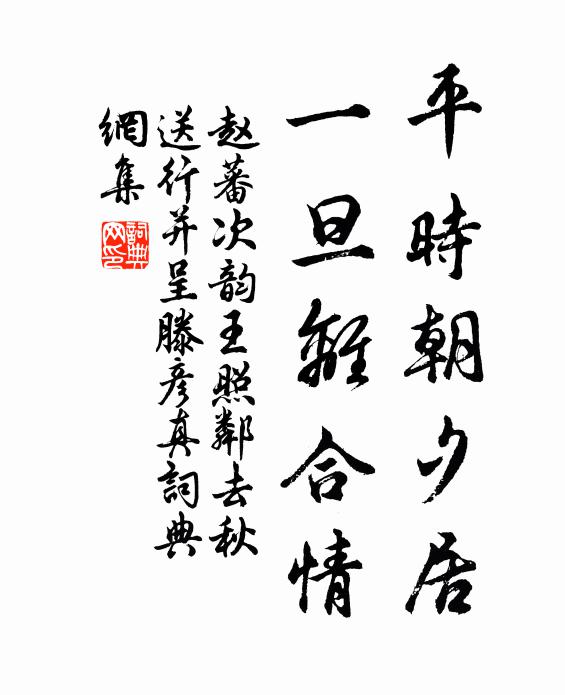 平時朝夕居
一旦離合情
赵蕃次韵王照鄰去秋
送行并呈滕彦真詞典
網集
詞典网印